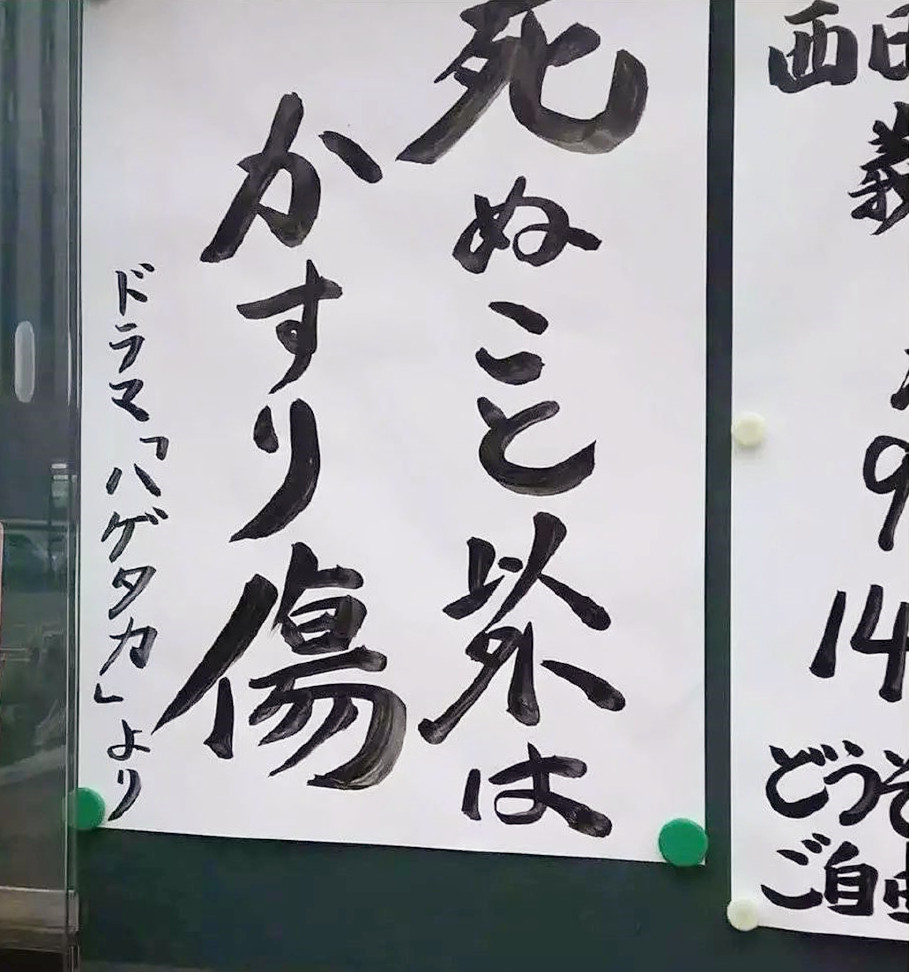 死ぬこと以外は
かすり傷
ドラマ「ハゲタカ」より
西田
9
14
どうぞ
ご自由